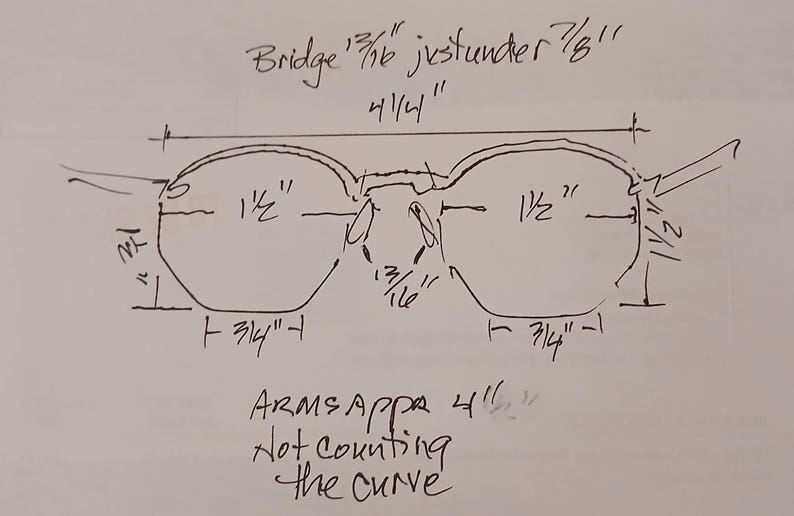 Bridge 13/16" just under 7/8"
4 1/4"
1 1/2" 1 1/2"
3/4" 1 1/2"
13/16"
3/4" 3/4"
ARMS Appr 4"
Not counting
the curve